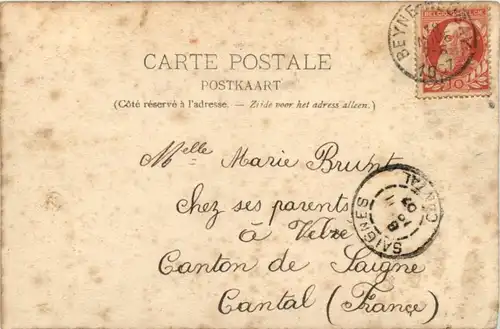 BEYNE
10
CARTE POSTALE
POSTKAART
(Côté réservé à l'adresse. — Zijde voor het adress alleen.)
Melle Marie Brunt
Chez ses parents
à Velze
Canton de Saigne
Cantal (France)
SAIGNES CANTAL